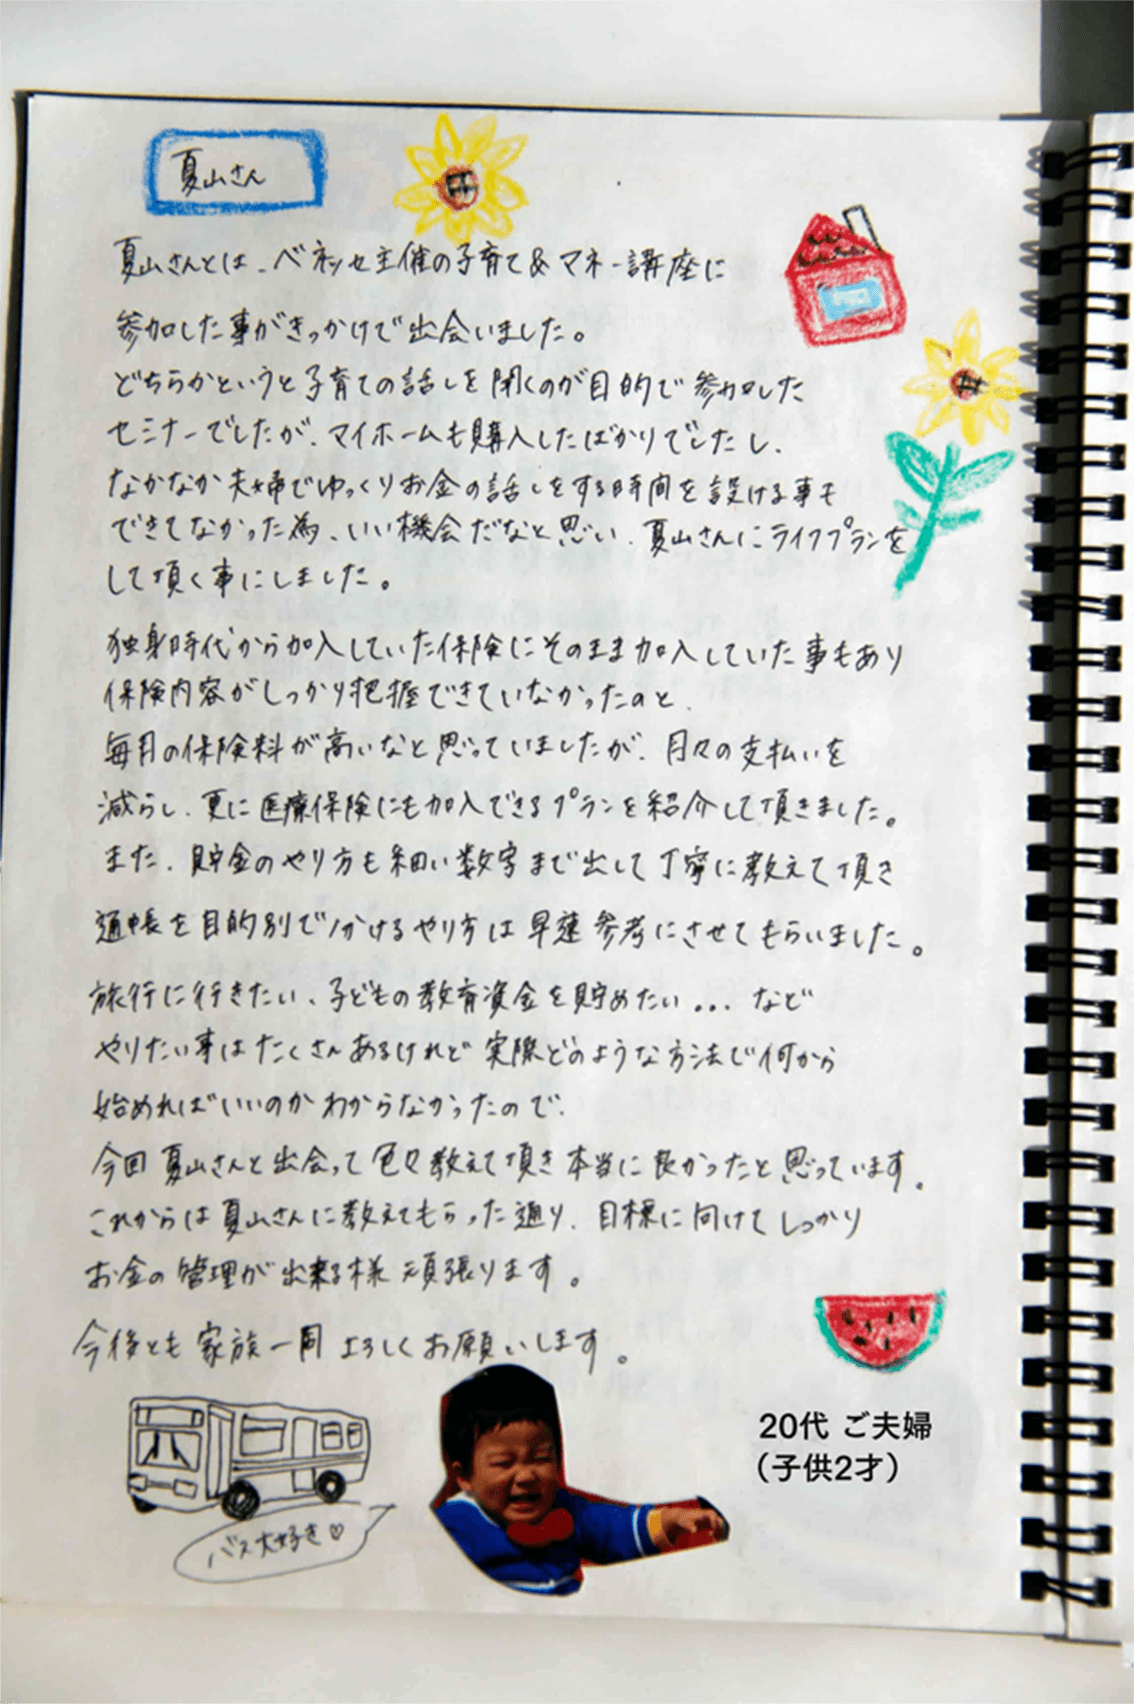 夏山さん
夏山さんとは、ベネッセ主催の子育て&マネー講座に
参加した事がきっかけで出会いました。
どちらかというと子育ての話しを聞くのが目的で参加した
セミナーでしたが、マイホームも購入したばかりでしたし、
なかなか夫婦でゆっくりお金の話しをする時間を設ける事も
できてなかった為、いい機会だなと思い、夏山さんにライフプランを
して頂く事にしました。
独身時代から加入していた保険にそのまま加入していた事もあり
保険内容がしっかり把握できていなかったのと、
毎月の保険料が高いなと思っていましたが、月々の支払いを
減らし、更に医療保険にも加入できるプランを紹介して頂きました。
また、貯金のやり方も細い数字まで出して丁寧に教えて頂き
通帳を目的別で分けるやり方は早速参考にさせてもらいました。
旅行に行きたい、子どもの教育資金を貯めたい...など
やりたい事はたくさんあるけれど実際どのような方法で何から
始めればいいのかわからなかったので、
今回夏山さんと出会って色々教えて頂き本当に良かったと思っています。
これからは夏山さんに教えてもらった通り、目標に向けてしっかり
お金の管理が出来る様頑張ります。
今後とも家族一同よろしくお願いします。
20代 ご夫婦
(子供2才)
バス大好き♡